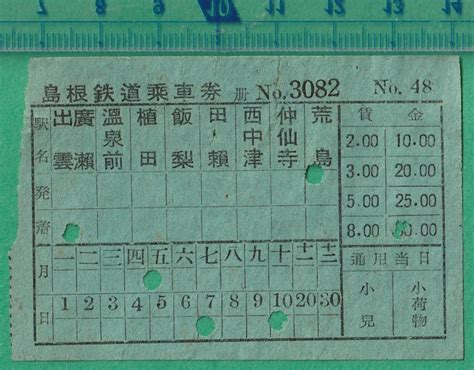 7 8 9 10 11 12 13 14
島根鉄道乗車券 册 No.3082 No. 48
駅名 出雲 廣瀬 溫泉前 植田 飯梨 田頼 西中津 仲仙寺 荒島
発
着
賃金
2.00 10.00
3.00 20.00
5.00 25.00
8.00
月 一 二 三 四 五 六 七 八 九 十 十一 十二
日 1 2 3 4 5 6 7 8 9 10 20 30
通用当日
小児 小荷物